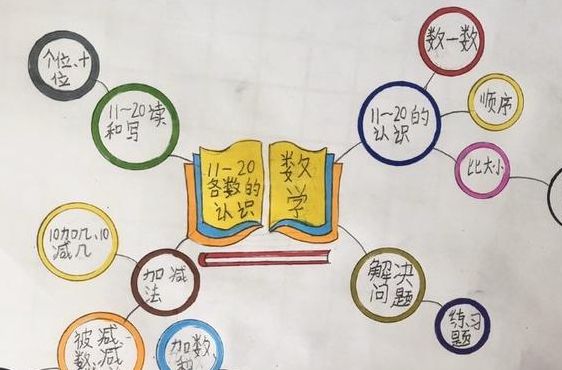 个位、十
位
11~20读
和写
11-20
各数的
认识
数
学
11~20的
认识
数一数
顺序
比大小
10加几、10
减几
加减
法
被减
数、减
加数、
和
解决
问题
练习
题